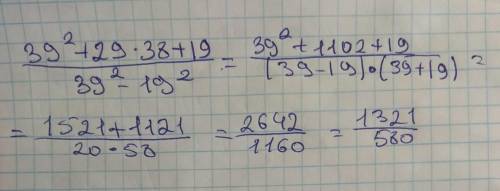 (39² + 29 · 38 + 19) / (39² - 19²) = (39² + 1102 + 19) / ((39 - 19) · (39 + 19)) =
= (1521 + 1121) / (20 · 58) = 2642 / 1160 = 1321 / 580